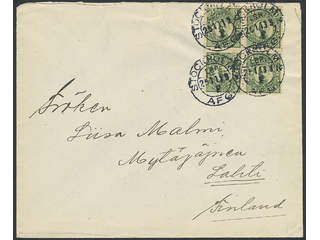 STOCKHOLM
AFG
Fröken
Liisa Malmi,
Mytäjäinen
Lahti
Finland